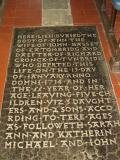 HERE LIETH BURIED THE
BODY OF ANN THE
WIFE OF IOHN BASSET
OF LATHONBRIDG AND
DAUGHTER OF RICHARD
CRONCK OF TUNBRIDG
WHO DEPARTED THIS
LIFE ON THE 13 DAY
OF IANUARY ANNO
DOMNE 1714 AND IN
THE YEAR OF HER
AGE LEAVING FIVE
CHILDREN VIZ 3 DAVGHT
ERS AND 2 SONS ACCOR
DING TO THERE AGES
AS FOLLOWETH
ANN AND KATHERIN
MICHAEL AND IOHN